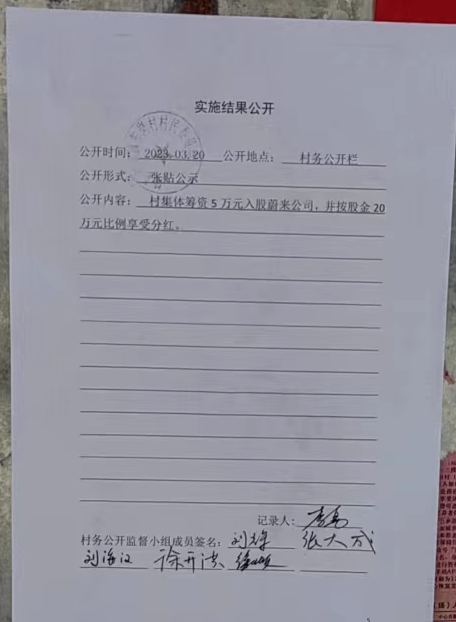 实施结果公开
公开时间： 2023.03.20 公开地点： 村务公开栏
公开形式： 张贴公示
公开内容： 村集体筹资 5 万元入股蔚来公司，并按股金 20
万元比例享受分红。
记录人：
村务公开监督小组成员签名： 张大成
刘海汉 徐开洪